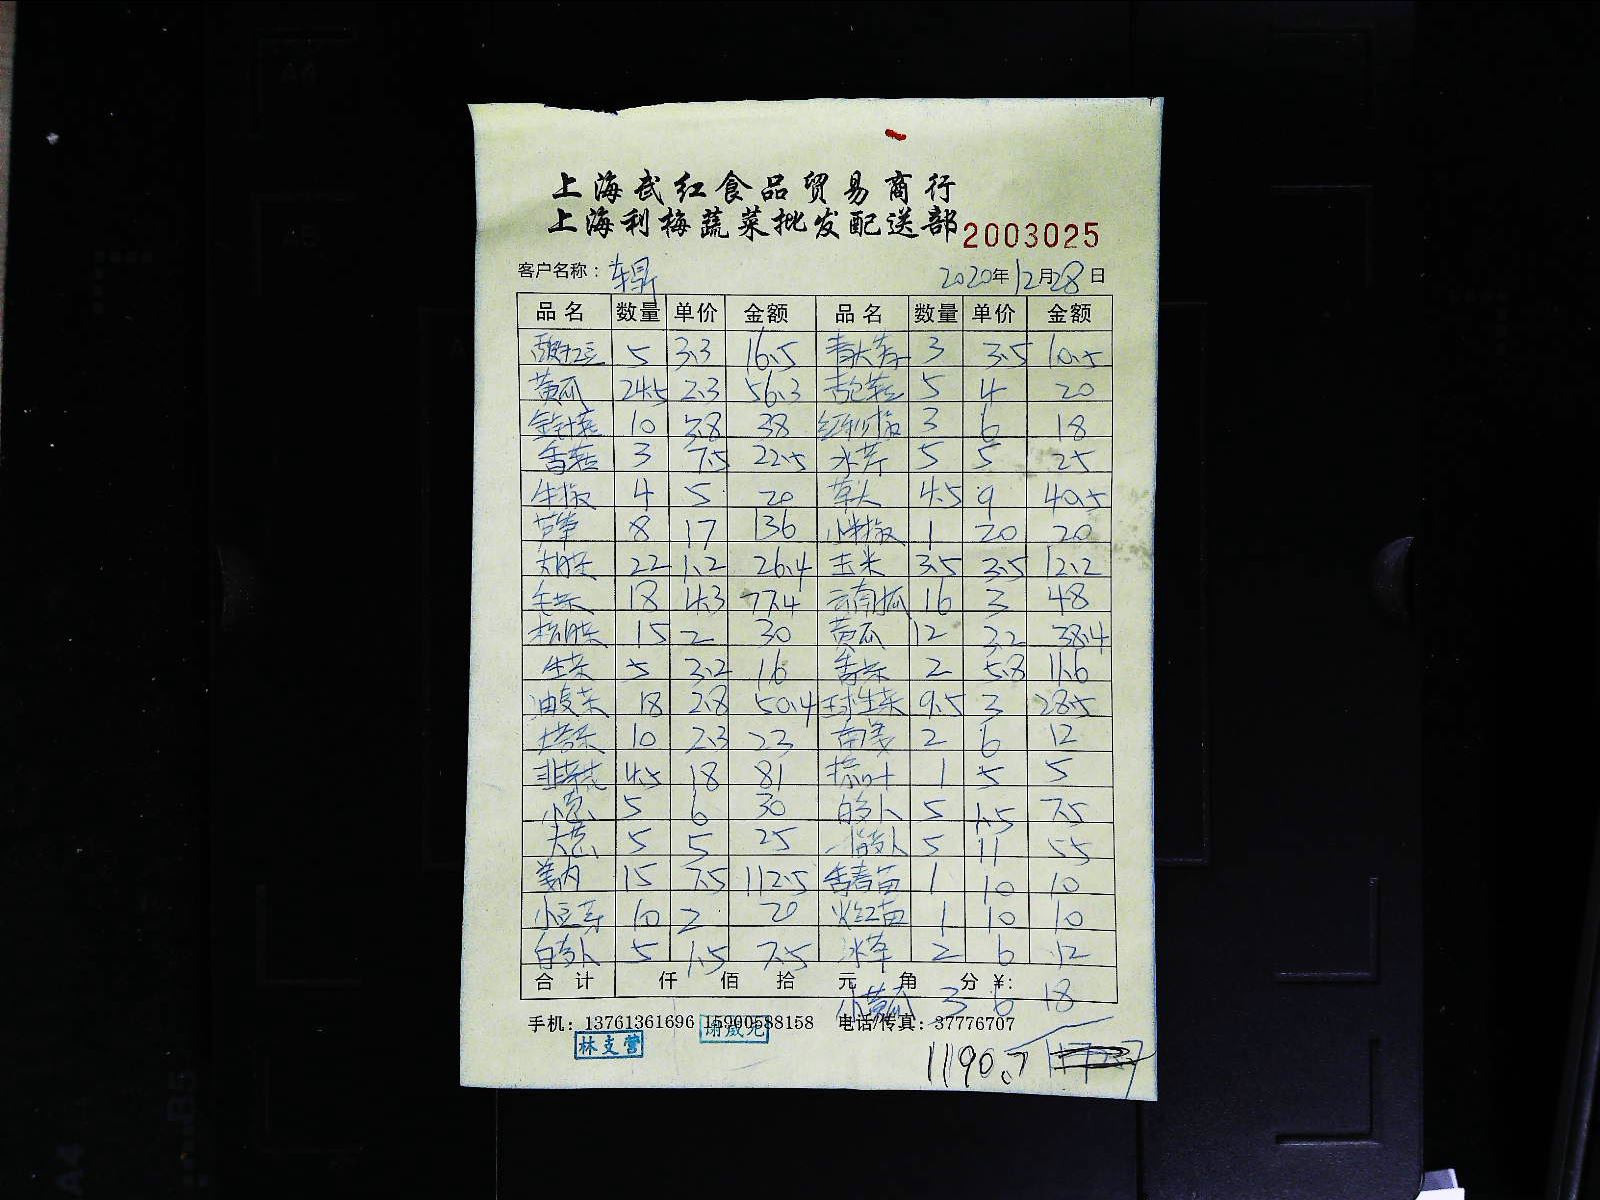 上海武红食品贸易商行
上海利梅蔬菜批发配送部 2003025
客户名称： 2020年12月28日
品名 数量 单价 金额 品名 数量 单价 金额
5 3.3 16.5 3 3.5 10.5
黄瓜 24.5 2.3 56.3 杏包菇 5 4 20
金针菇 10 3.8 38 红利椒 3 6 18
香菇 3 7.5 22.5 水芹 5 5 25
牛椒 4 5 20 草头 4.5 9 40.5
芦笋 8 17 136 小米椒 1 20 20
22 1.2 26.4 玉米 3.5 3.5 12.2
毛菜 18 4.3 77.4 云南瓜 16 3 48
15 2 30 黄瓜 12 3.2 38.4
生菜 5 3.2 16 香菜 2 5.8 11.6
油麦菜 18 2.8 50.4 球生菜 9.5 3 28.5
塔菜 10 2.3 23 南姜 2 6 12
韭菜花 4.5 18 81 1 5 5
小葱 5 6 30 白萝卜 5 1.5 7.5
大葱 5 5 25 5 11 55
姜肉 15 7.5 112.5 香春苗 1 10 10
小豆芽 10 2 20 1 10 10
白萝卜 5 1.5 7.5 冰草 2 6 12
合计 仟 佰 拾 元 角 分 ¥:
小黄瓜 3 6 18
手机：13761361696 15900588158 电话/传真：37776707
林支营
1190.7